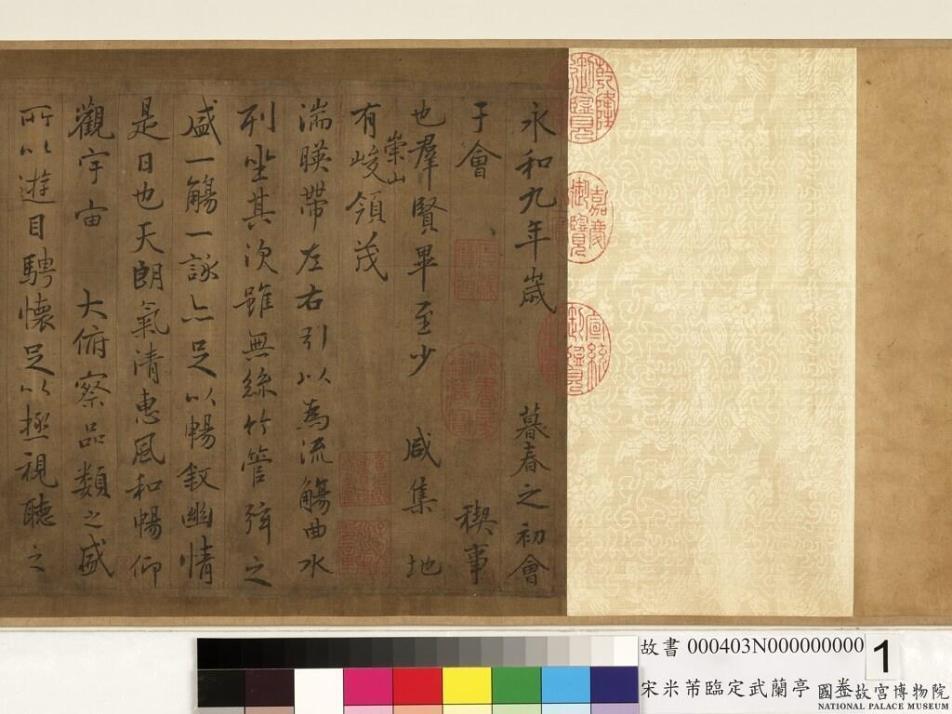 永和九年歲 暮春之初會
于會 、 稧事
也羣賢畢至少 咸集 地
有崇山峻領茂
湍暎帶左右引以為流觴曲水
列坐其次雖無絲竹管弦之
盛一觴一詠亦足以暢敘幽情
是日也天朗氣清惠風和暢仰
觀宇宙 大俯察品類之盛
所以遊目騁懷足以極視聽之
乾隆御覽
嘉慶御覽
宣統御覽
故書 000403N000000000 1
宋米芾臨定武蘭亭 卷
故宮博物院
NATIONAL PALACE MUSEUM